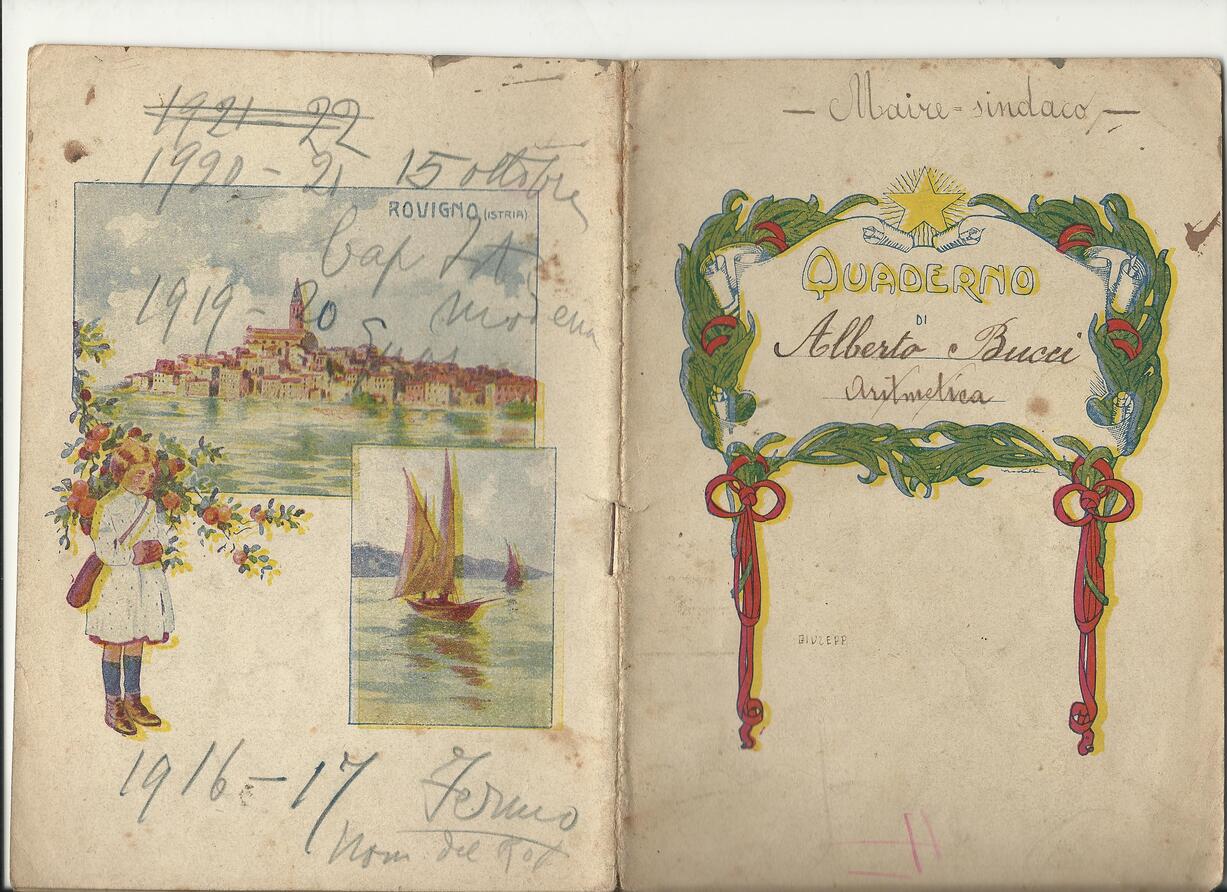 1921-22
1920-21 15 ottobre
ROVIGNO (ISTRIA)
Cap
1919-20 Modena
1916-17 Fermo
Nom. del
— Maire = sindaco —
QUADERNO
DI
Alberto Bucci
Aritmetica
GIUSEPP